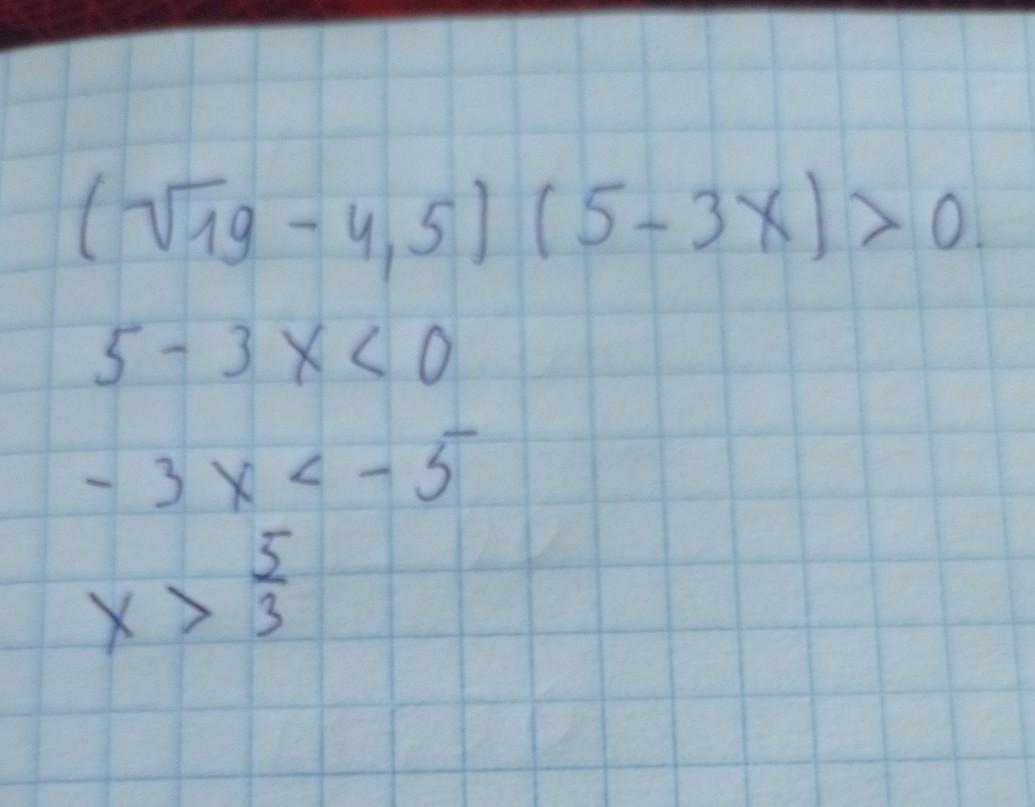 (√19 - 4,5) (5 - 3x) > 0.
5 - 3x < 0
- 3x < - 5
x > 5/3